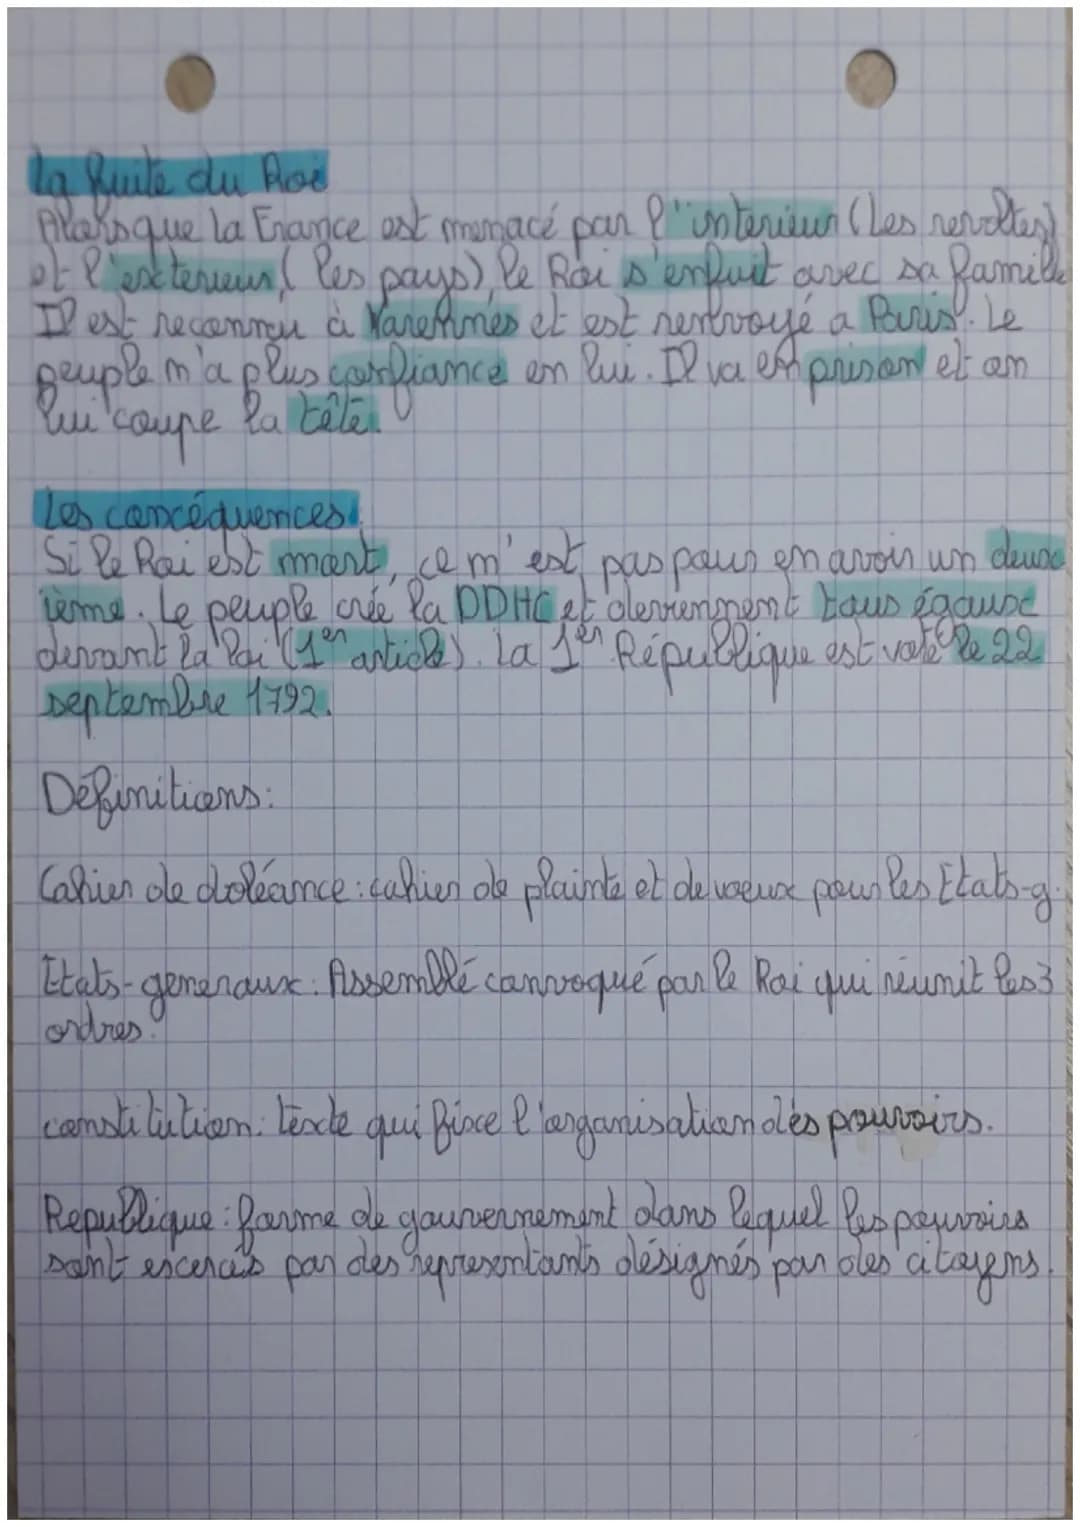 La fuite du Roi
Alors que la France est menacé par l'"interieur (les revoltes)
et l'exterieur, (les pays), le Roi s'enfuit avec sa famille
Il est reconnu à Varennes et est rentvoyé a Paris. Le
peuple n'a plus confiance en lui. Il va en prison et on
lui coupe la tête.
Les concéquences.
Si le Roi est mort, ce n'est pas pour en avoir un deux
ième. Le peuple crée la DDHC et deviennent tous égaux
devant la loi (1er article). La 1er République est voté le 22
septembre 1792.
Définitions:
Cahier de doléance : cahier de plainte et de voeux pour les Etats-g.
Etats-generaux : Assemblé convoqué par le Roi qui réunit les 3
ordres.
constitution : texte qui fixe l'organisation des pouvoirs.
Republique : forme de gouvernement dans lequel les pouvoirs
sont excercés par des representants désignés par des citoyens.